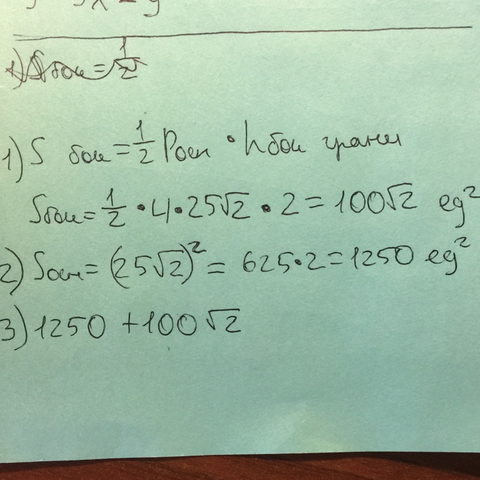 1) Sбок = 1/2
1) S бок = 1/2 Pосн · h бок грани
Sбок = 1/2 · 4 · 25√2 · 2 = 100√2 ед²
2) Sосн = (25√2)² = 625·2 = 1250 ед²
3) 1250 + 100√2